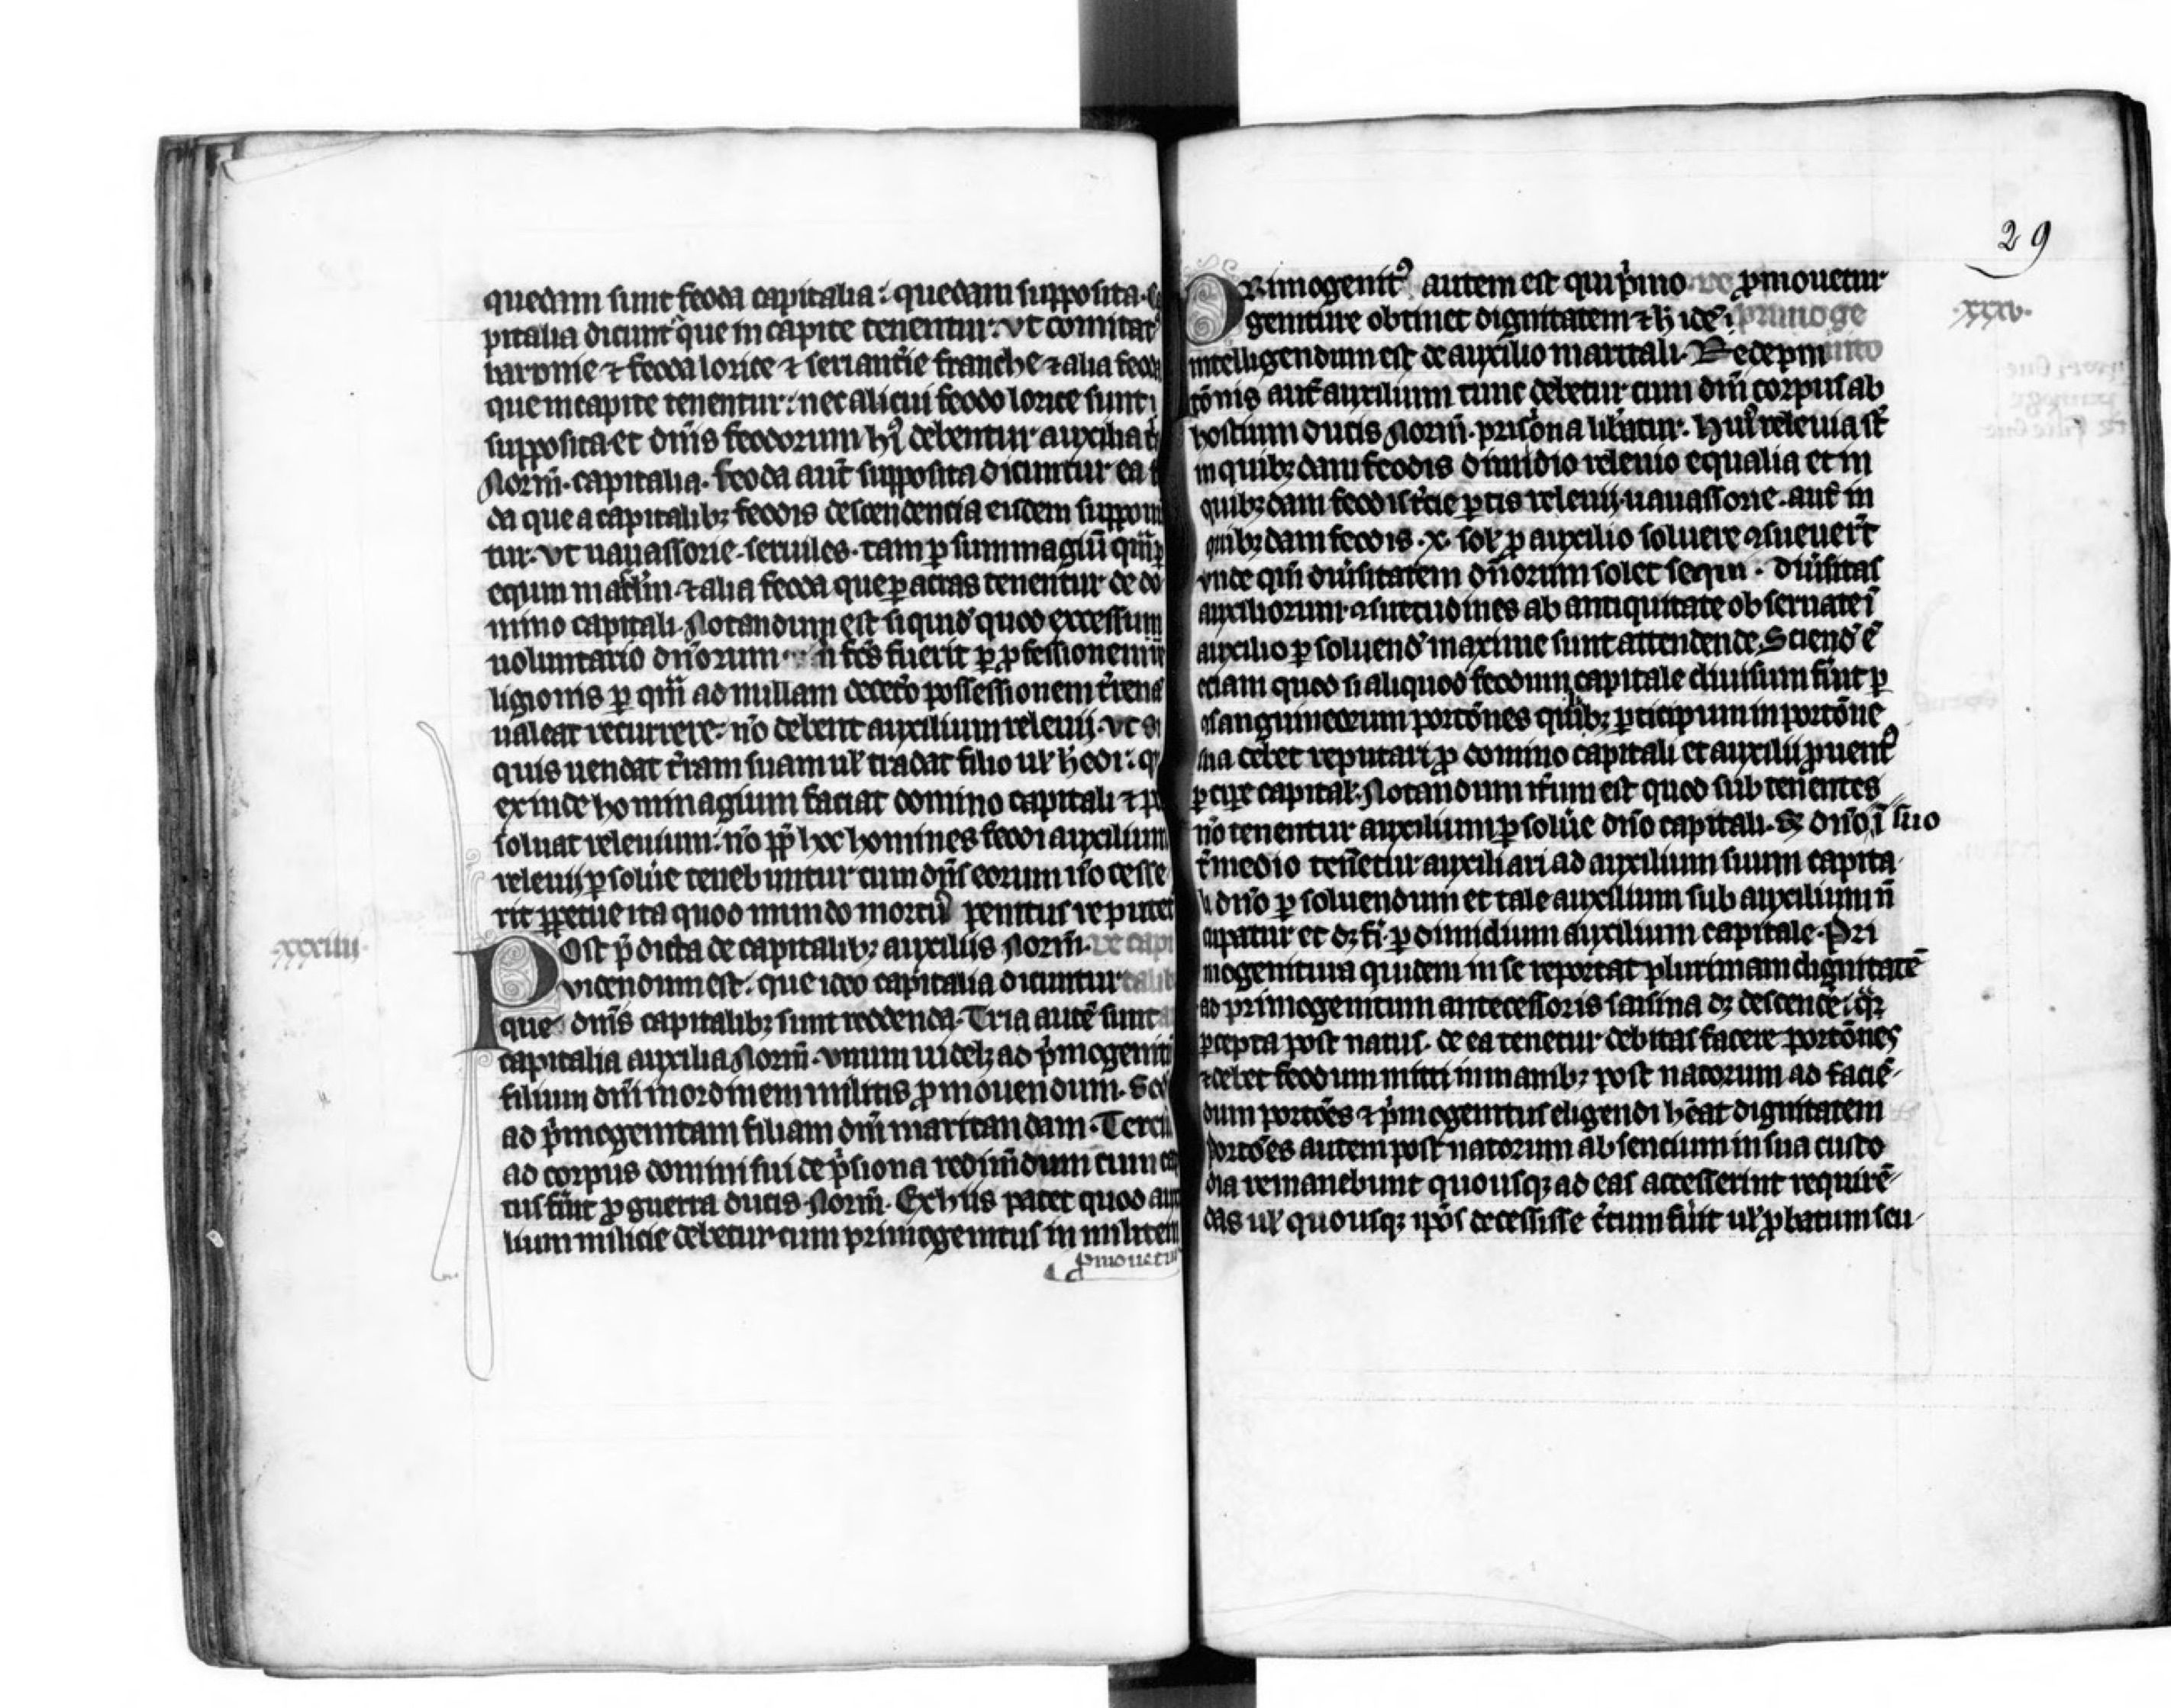 quedam sunt feoda capitalia: quedam supposita.
pitalia dicunt᷑ que in capite tenentur. vt comitat᷒
baronie ⁊ feoda lorice ⁊ seriantie franche ⁊ alia feoda
que in capite tenentur: nec alicui feodo lorice sunt
supposita et dn̄is feodorum hī debentur auxilia
Norm̄. capitalia. feoda aut̄ supposita dicuntur ea
da que a capitalibꝫ feodis descendencia eisdem suppon
tur. vt uauassorie. seruiles. tam ꝑ summagiū
equm ⁊ alia feoda que ꝑ acras tenentur de do
mino capitali. Notandum est siquid᷑ quod excessum
uoluntario dn̄orum fc̄s fuerit ꝑ ꝓfessionem
ligionis ꝑ qm̄ ad nullam decet᷑o possessionem t᷑rena
ualeat recurrere. nō debent auxilium releuij. vt
quis uendat t᷑ram suam ul᷑ tradat filio ul᷑ h᷑edi:
exinde hominagium faciat domino capitali ⁊
soluat releuium: nō ꝓp̄ hoc homines feodi auxilium
releuij ꝑsolu᷑e tenebuntur cum dn̄s eorum nō cesse
rit ꝑpetue ita quod mundo mortu᷒ penitus reputet
xxxiiii.
Post p᷑dicta de capitalibꝫ auxiliis Norm̄. de capi
videndum est. que ideo capitalia dicuntur talib
que dn̄is capitalibꝫ sunt reddenda. Tria aute᷑ sunt
capitalia auxilia Norm̄. vnum uidelꝫ ad p᷑mogeniti
filium dn̄i in ordinem militis ꝓmouendum.
ad p᷑mogenitam filiam dn̄i maritandam. Terci
ad corpus domini sui de p᷑siona redim̄dum cum
tus fu᷑it ꝓ guerra ducis Norm̄. Ex hiis patet quod
lium milicie debetur cum primogenitus in militem
ꝓmouetur
29
Primogenit᷒ autem est qui p᷑mo de ꝓmouetur
geniture obtinet dignitatem ⁊ h̄ idē primoge
xxxv.
intelligendum est de auxilio maritali. Redempm nito
tōnis aut̄ auxilium tunc debetur cum dn̄i corpus ab
hostium ducis Norm̄. prisona lib᷑atur. releuia st̄
in quibꝫdam feodis dimidio releuio equalia et in
quibꝫdam feodis t᷑cie ꝑtis releuij. uauassorie. aut̄ in
quibꝫdam feodis .x. sol᷑ ꝓ auxilio soluere ꝯsueuer᷑t
vnde qm̄ diu᷑sitatem dn̄orum solet sequi. diu᷑sitas
auxiliorum ꝯsuetudines ab antiquitate obseruate ī
auxilio ꝑsoluend᷑ maxime sunt attendende. Sciend᷑ ē
etiam quod si aliquod feodum capitale diuisum fu᷑it ꝑ
ꝯsanguineorum portōnes quilibꝫ ꝑticipum in portōne
sua debet reputari ꝓ domino capitali et auxilij ꝓuent᷒
ꝑcipe capital᷑. Notandum it᷑um est quod subtenentes
nō tenentur auxilium ꝑsolu᷑e dn̄o capitali. sꝫ dn̄o ī suo
t᷑medio tenētur auxiliari ad auxilium suum capita
li dn̄o ꝑsoluendum et tale auxilium sub auxilium n̄
cupatur et dꝫ fi᷑. ꝑ dimidium auxilium capitale. Pri
mogenitura quidem in se reportat plurimam dignitatē
ad primogenitum antecessoris saisina dꝫ descende᷑
ꝑcepta post natus. de ea tenetur debitas facere portōnes
⁊ debet feodum mitti in manibꝫ post natorum ad faciē
dum portōes ⁊ p᷑mogenitus eligendi h᷑eat dignitatem
portōes autem post natorum absencium in sua custo
dia remanebunt quousqꝫ ad eas accesserint requirē
das ul᷑ quousqꝫ ip̄os decessisse c᷑tum fu᷑it ul᷑ ꝓbatum seu